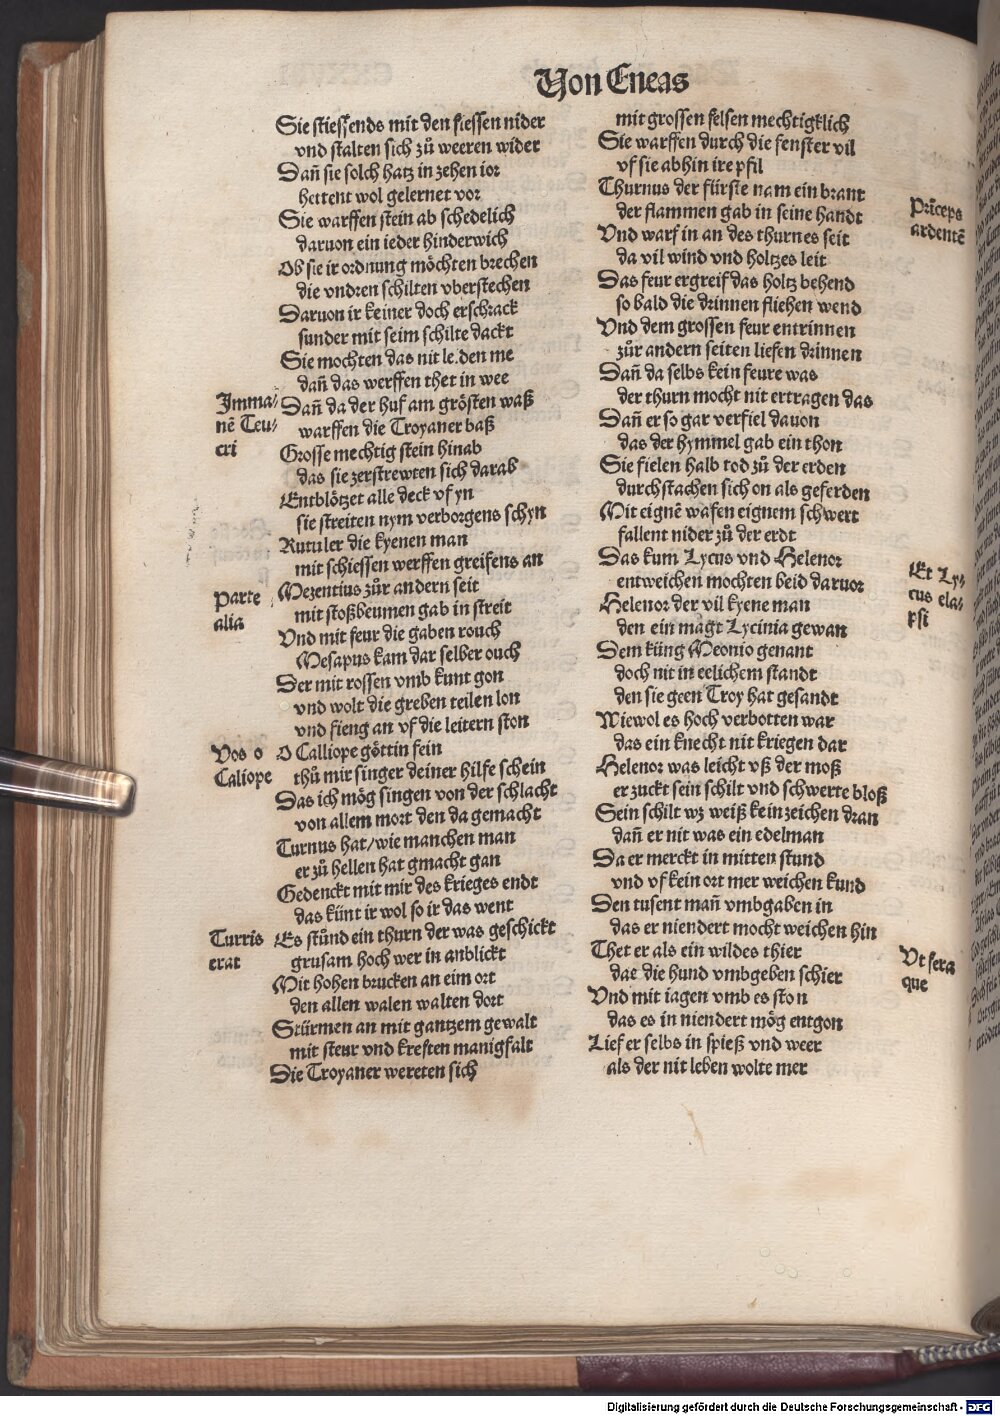 Von Eneas
Sie stiessends mit den fiessen nider
vnd stalten sich zů weeren wider
Dañ sie solch hatz in zehen ior
hettent wol gelernet vor
Sie warffen stein ab schedelich
daruon ein ieder hinderwich
Ob sie ir ordnung möchten brechen
die vndren schilten vberstechen
Daruon ir keiner doch erschrack
sunder mit seim schilte dackt
Sie mochten das nit le.den me
dañ das werffen thet in wee
Imma/
nē Teu/
cri
Dañ da der huf am grösten waß
warffen die Troyaner baß
Grosse mechtig stein hinab
das sie zerstrewten sich darab
Entblötzet alle deck vf yn
sie streiten nym verborgens schyn
Rutuler die kyenen man
mit schiessen werffen greifens an
Parte
alia
Mezentius zůr andern seit
mit stoßbeumen gab in streit
Vnd mit feur die gaben rouch
Mesapus kam dar selber ouch
Der mit rossen vmb kunt gon
vnd wolt die greben teilen lon
vnd fieng an vf die leitern ston
Vos o
Caliope
O Calliope göttin fein
thů mir singer deiner hilfe schein
Das ich mög singen von der schlacht
von allem mort den da gemacht
Turnus hat/wie manchen man
er zů hellen hat gmacht gan
Gedenckt mit mir des krieges endt
das künt ir wol so ir das went
Turris
erat
Es stůnd ein thurn der was geschickt
grusam hoch wer in anblickt
Mit hohen brucken an eim ort
den allen walen walten dort
Stürmen an mit gantzem gewalt
mit steur vnd kreften manigfalt
Die Troyaner wereten sich
mit grossen felsen mechtigklich
Sie warffen durch die fenster vil
vf sie abhin ire pfil
Prīceps
ardentē
Thurnus der fürste nam ein brant
der flammen gab in seine handt
Vnd warf in an des thurnes seit
da vil wind vnd holtzes leit
Das feur ergreif das holtz behend
so bald die drinnen fliehen wend
Vnd dem grossen feur entrinnen
zůr andern seiten liefen drinnen
Dañ da selbs kein feure was
der thurn mocht nit ertragen das
Dañ er so gar verfiel dauon
das der hymmel gab ein thon
Sie fielen halb tod zů der erden
durchstachen sich on als geferden
Mit eignē wafen eignem schwert
fallent nider zů der erdt
Et Ly/
cus ela/
psi
Das kum Lycus vnd Helenor
entweichen mochten beid daruor
Helenor der vil kyene man
den ein magt Lycinia gewan
Dem küng Meonio genant
doch nit in eelichem standt
den sie geen Troy hat gesandt
Wiewol es hoch verbotten war
das ein knecht nit kriegen dar
Helenor was leicht vß der moß
er zuckt sein schilt vnd schwerte bloß
Sein schilt wz weiß kein zeichen dran
dañ er nit was ein edelman
Da er merckt in mitten stund
vnd vf kein ort mer weichen kund
Den tusent mañ vmbgaben in
das er niendert mocht weichen hin
Vt fera
que
Thet er als ein wildes thier
dae die hund vmbgeben schier
Vnd mit iagen vmb es ston
das es in niendert mög entgon
Lief er selbs in spieß vnd weer
als der nit leben wolte mer
Digitalisierung gefördert durch die Deutsche Forschungsgemeinschaft - DFG